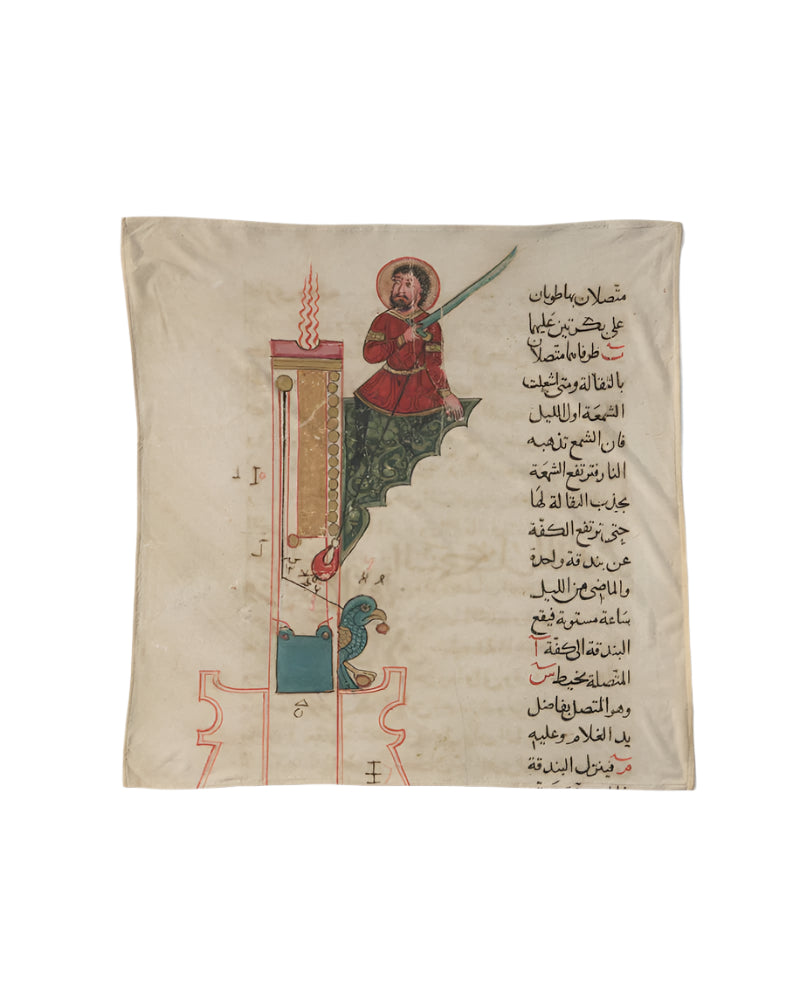 متصلان بها طوبان
على بكرتين عليهما
طرفاهما متصلان
بالثقالة ومتى اشعلت
الشمعة اول الليل
فان الشمع تذهبه
النار فترتفع الشمعة
بجذب الثقالة لها
حتى ترتفع الكفة
عن بندقة واحدة
والماضي من الليل
ساعة مستوية فيقع
البندقة الى كفة آ
المتصلة بخيط س
وهو المتصل بفاضل
يد الغلام وعليه
فينزل البندقة